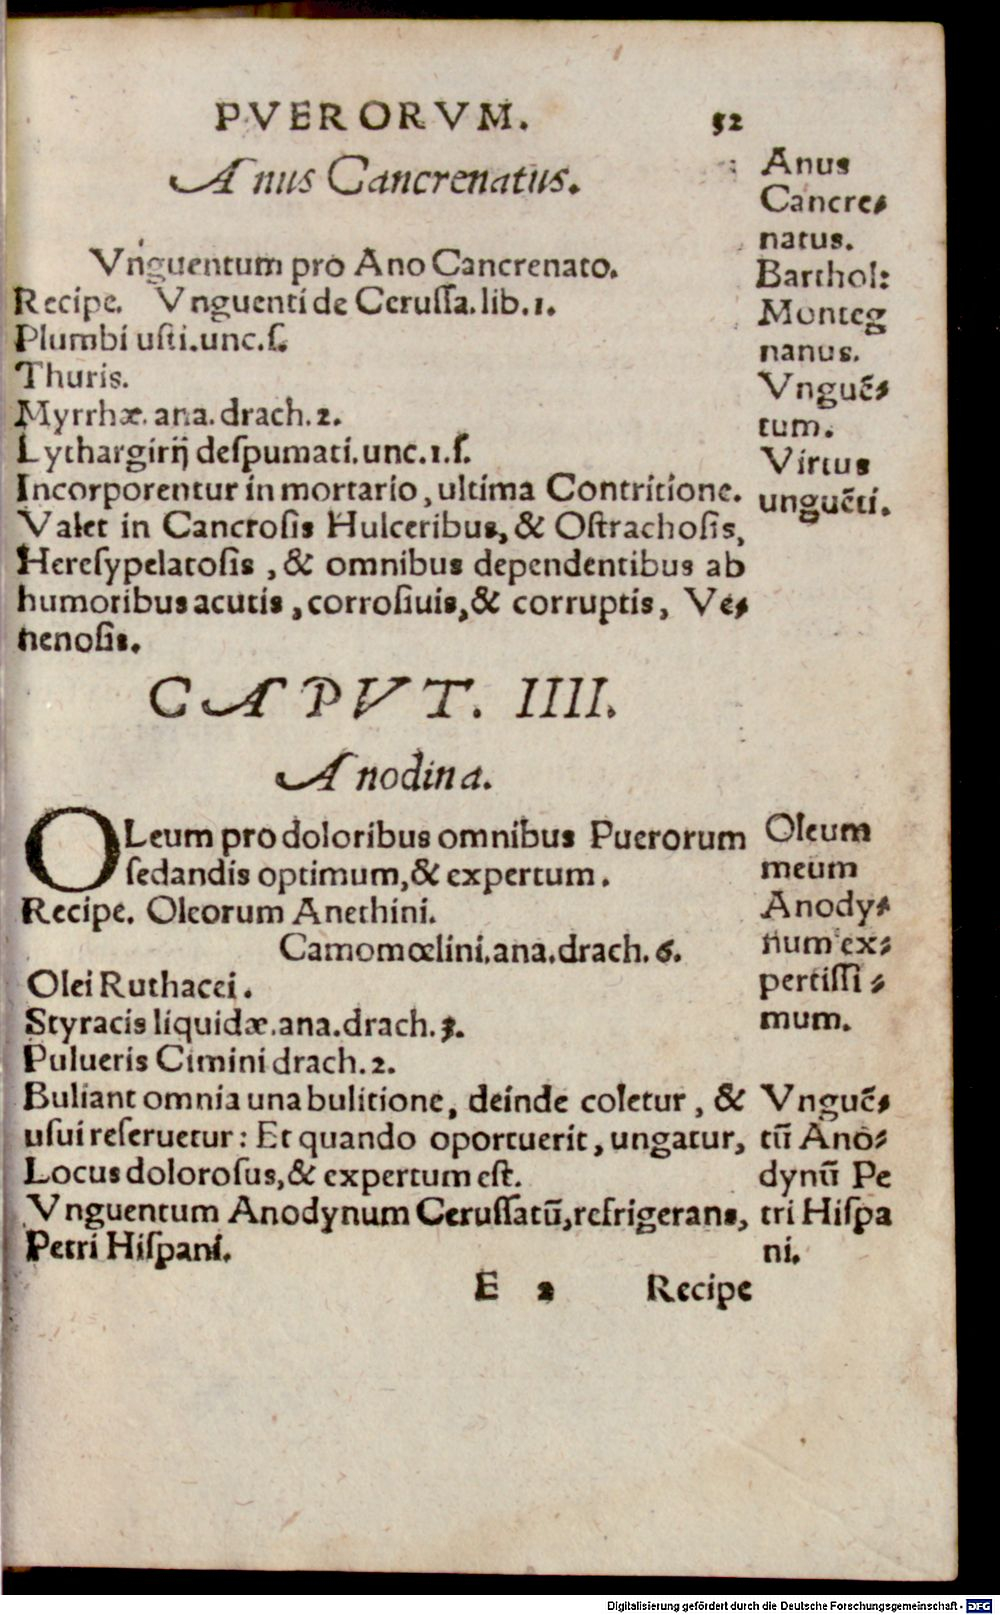 PVERORVM. 52
Anus Cancrenatus.
Vnguentum pro Ano Cancrenato.
Recipe. Vnguenti de Ceruſſa. lib. 1.
Plumbi uſti. unc. ſ.
Thuris.
Myrrhæ. ana. drach. 2.
Lythargirij deſpumati. unc. 1. ſ.
Incorporentur in mortario, ultima Contritione.
Valet in Cancroſis Hulceribus, & Oſtrachoſis,
Hereſypelatoſis, & omnibus dependentibus ab
humoribus acutis, corroſiuis, & corruptis, Ve⸗
nenoſis.
Anus
Cancre⸗
natus.
Barthol:
Monteg
nanus.
Vnguẽ⸗
tum.
Virtus
unguẽti.
CAPVT. IIII.
Anodina.
OLeum pro doloribus omnibus Puerorum
ſedandis optimum, & expertum.
Recipe. Oleorum Anethini.
Camomœlini. ana. drach. 6.
Olei Ruthacei.
Styracis liquidæ. ana. drach. 3.
Pulueris Cimini drach. 2.
Buliant omnia una bulitione, deinde coletur, &
uſui reſeruetur: Et quando oportuerit, ungatur,
Locus doloroſus, & expertum eſt.
Vnguentum Anodynum Ceruſſatũ, refrigerans,
Petri Hiſpani.
Oleum
meum
Anody⸗
num ex⸗
pertiſſi⸗
mum.
Vnguẽ⸗
tũ Ano⸗
dynũ Pe
tri Hiſpa
ni.
E 2 Recipe
Digitalisierung gefördert durch die Deutsche Forschungsgemeinschaft - DFG